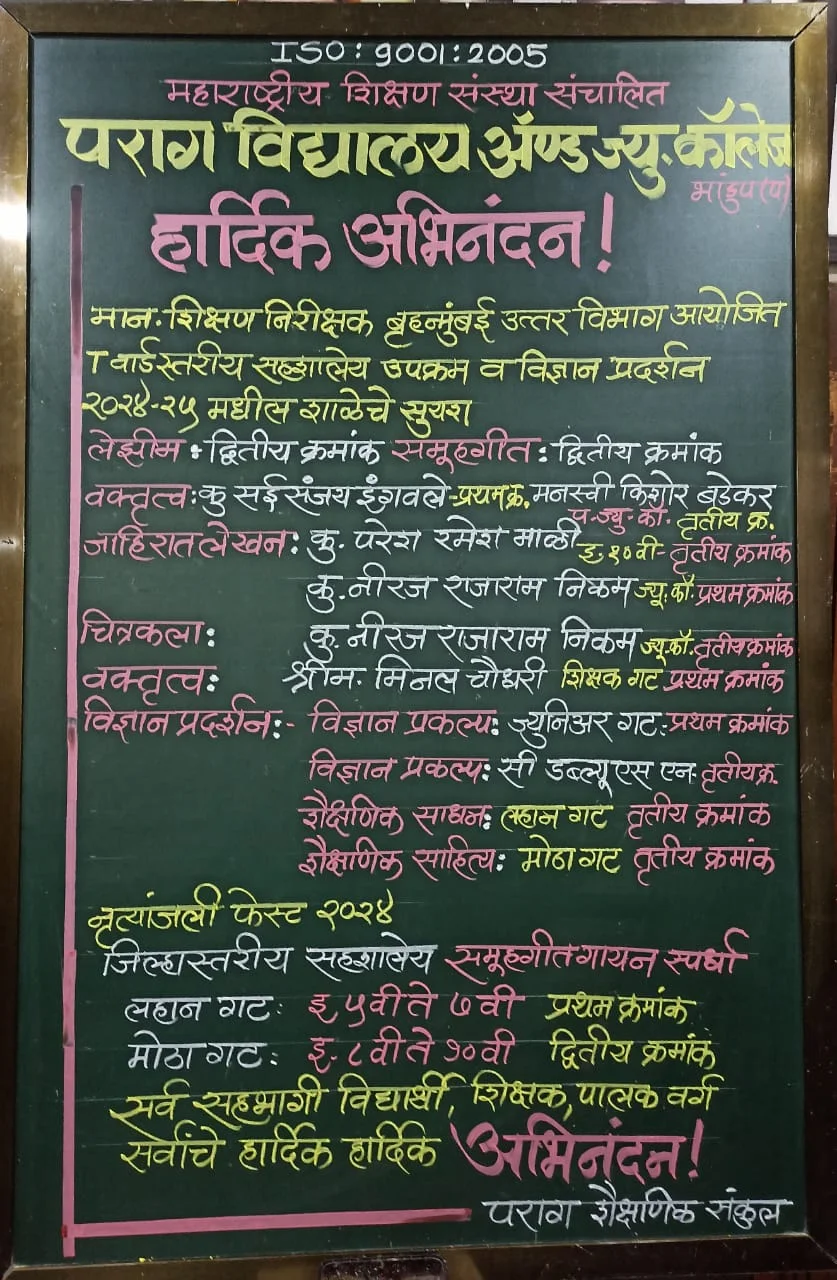 ISO : 9001 : 2005
महाराष्ट्रीय शिक्षण संस्था संचालित
पराग विद्यालय ॲण्ड ज्यु. कॉलेज
भांडुप (प)
हार्दिक अभिनंदन!
मान. शिक्षण निरीक्षक बृहन्मुंबई उत्तर विभाग आयोजित
T वार्ड स्तरीय सहशालेय उपक्रम व विज्ञान प्रदर्शन
२०२४-२५ मधील शाळेचे सुयश
लेझीम : द्वितीय क्रमांक समूहगीत : द्वितीय क्रमांक
वक्तृत्व : कु सई संजय इंगवले - प्रथम क्र. मनस्वी किशोर बडेकर
प. ज्यु. कॉ. तृतीय क्र.
जाहिरात लेखन : कु. परेश रमेश माळी इ. १०वी - तृतीय क्रमांक
कु. नीरज राजाराम निकम ज्यू. कॉ. प्रथम क्रमांक
चित्रकला : कु. नीरज राजाराम निकम ज्यू. कॉ. तृतीय क्रमांक
वक्तृत्व : श्रीम. मिनल चौधरी शिक्षक गट प्रथम क्रमांक
विज्ञान प्रदर्शन :- विज्ञान प्रकल्प : ज्युनिअर गट :- प्रथम क्रमांक
विज्ञान प्रकल्प : सी डब्ल्यू एस एन - तृतीय क्र.
शैक्षणिक साधन : लहान गट तृतीय क्रमांक
शैक्षणिक साहित्य : मोठा गट तृतीय क्रमांक
नृत्यांजली फेस्ट २०२४
जिल्हास्तरीय सहशालेय समूहगीत गायन स्पर्धा
लहान गट : इ. ५वी ते ७वी प्रथम क्रमांक
मोठा गट : इ. ८वी ते १०वी द्वितीय क्रमांक
सर्व सहभागी विद्यार्थी, शिक्षक, पालक वर्ग
सर्वांचे हार्दिक हार्दिक अभिनंदन!
पराग शैक्षणिक संकुल